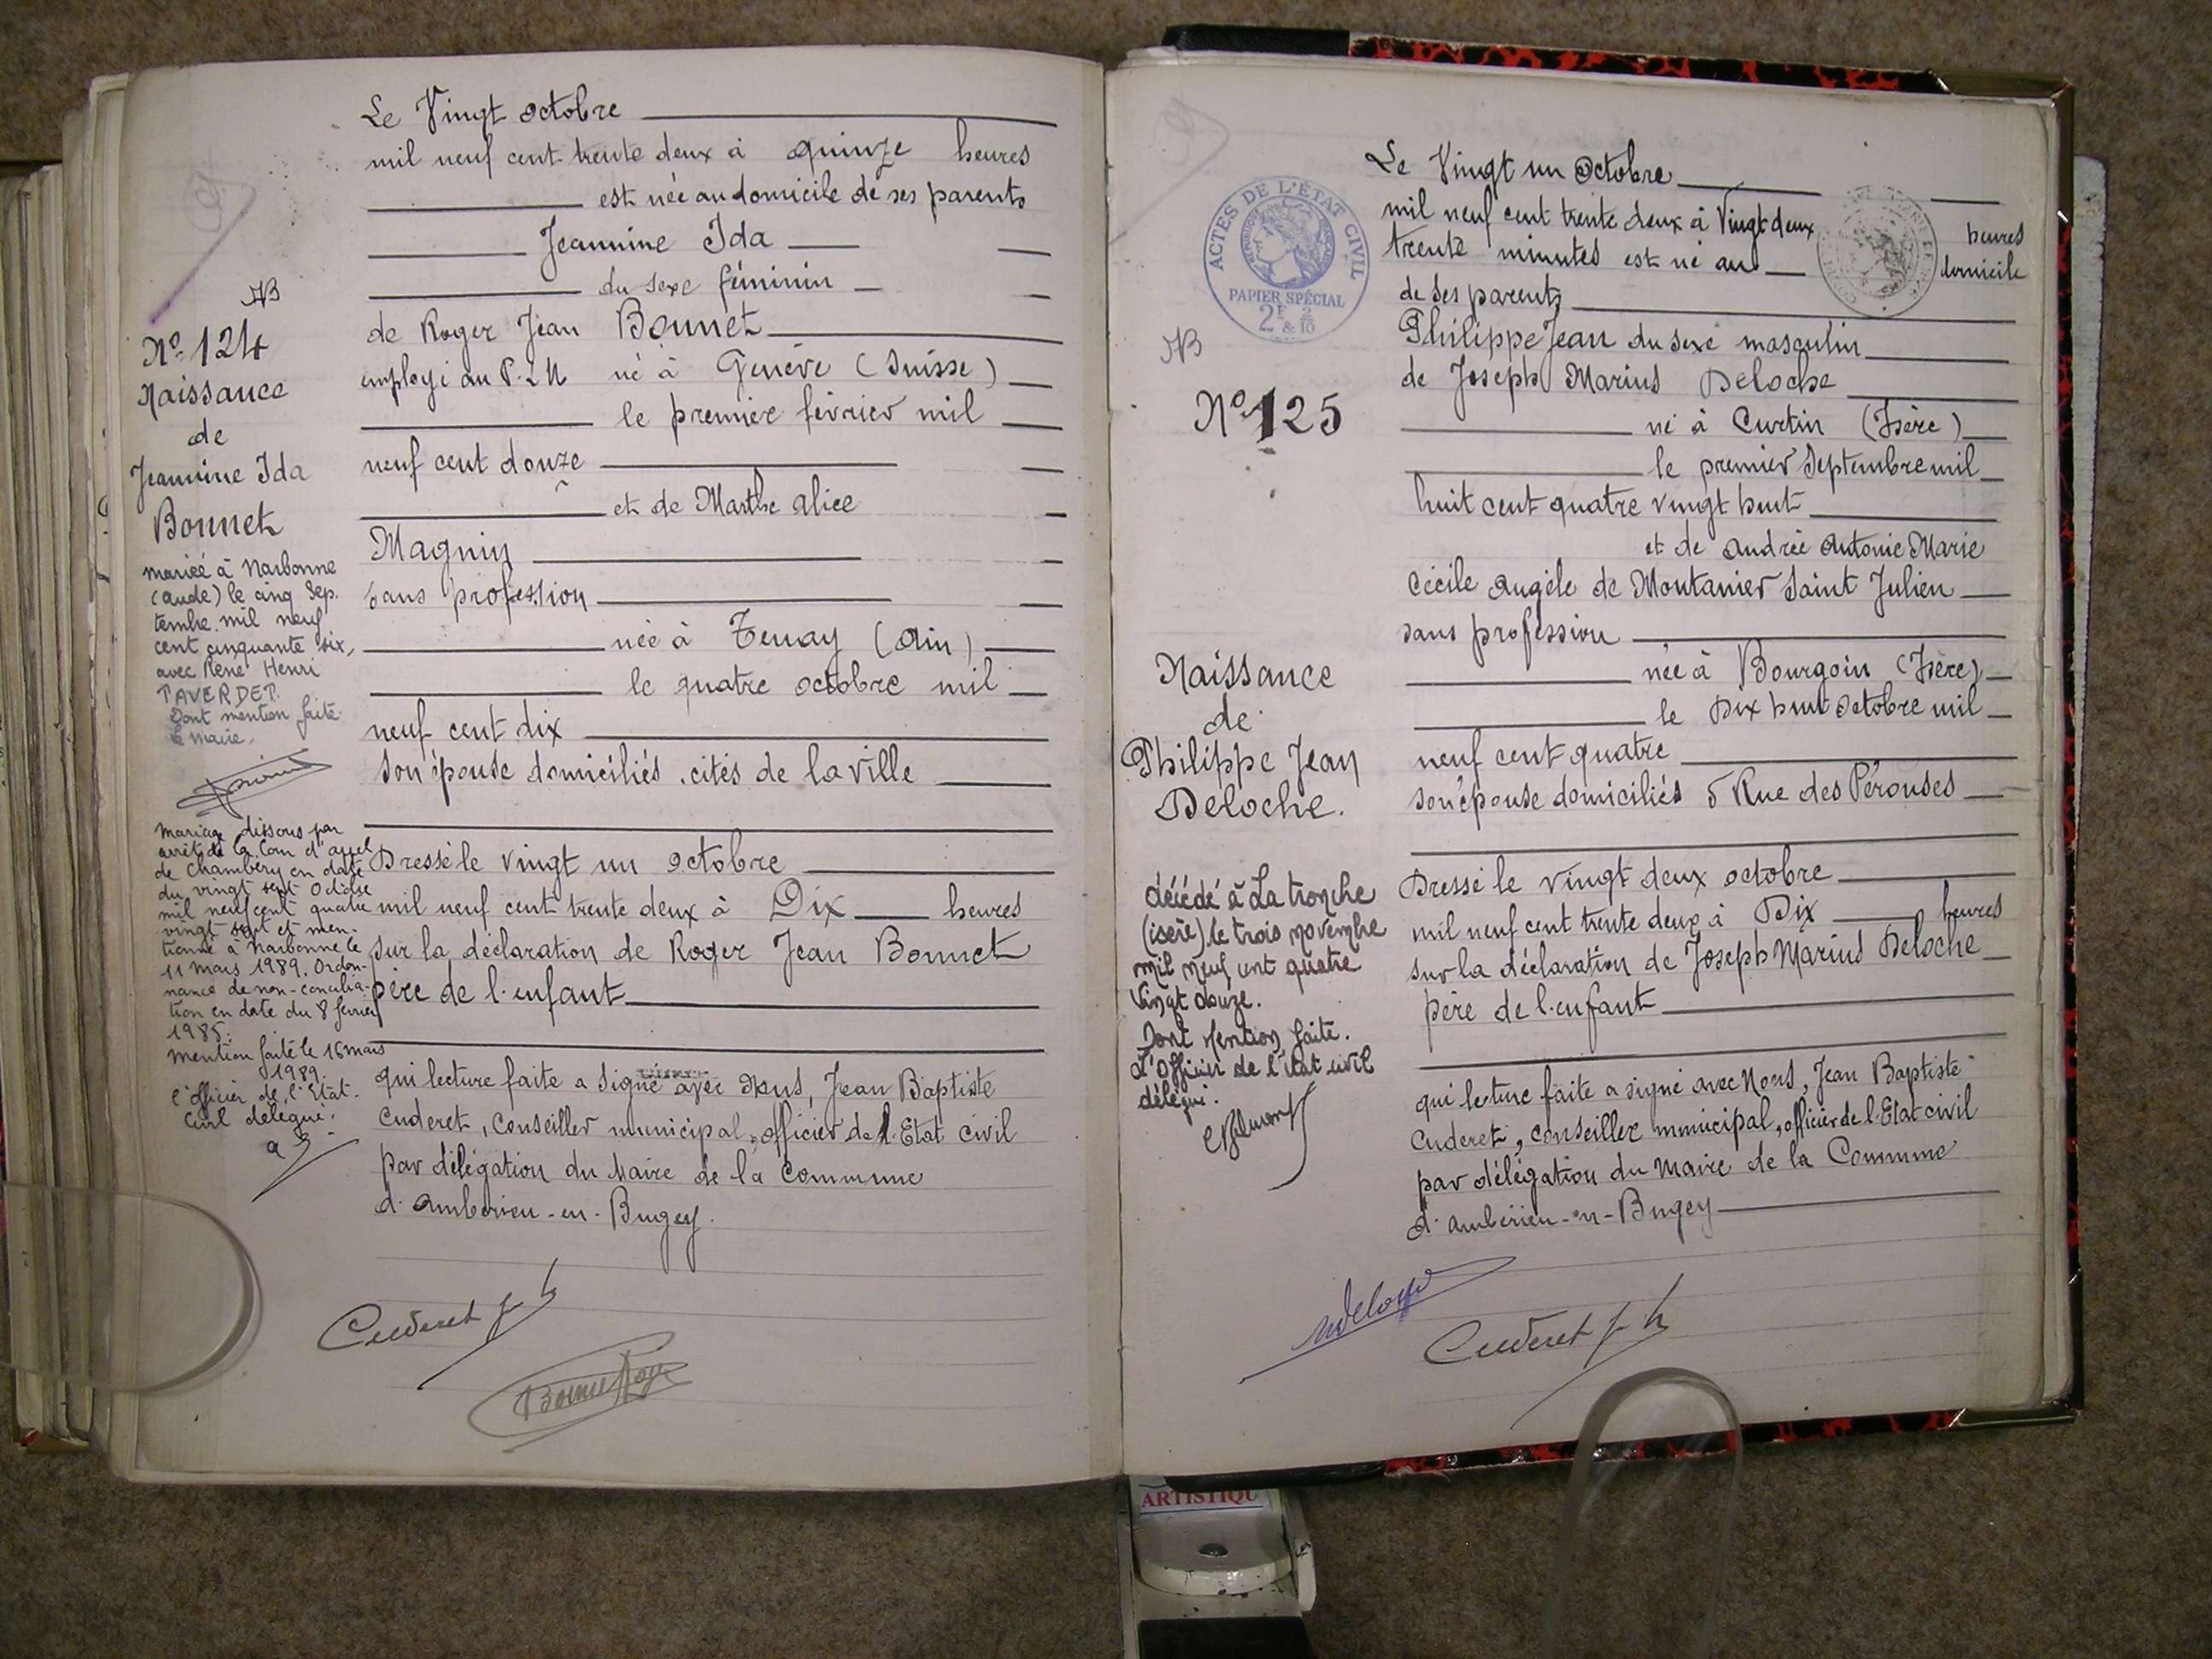 NB
Nº 124
Naissance
de
Jeannine Ida
Bonnet
mariée à Narbonne
(aude) le cinq Sep.
tembre mil neuf
cent cinquante six,
avec René Henri
TAVERDET.
Dont mention faite
le Maire.
Mariage dissous par
arrêt de la Cour d'appel
de Chambéry en date
du vingt sept Octobre
mil neuf cent quatre
vingt sept et men-
tionné à Narbonne le
11 Mars 1989. Ordon-
nance de non-concilia-
tion en date du 8 février
1985.
Mention faite le 16 mars
1989.
l'officier de l'Etat-
Civil délégué.
Le Vingt octobre
mil neuf cent trente deux à quinze heures
est née au domicile de ses parents
Jeannine Ida
du sexe féminin
de Roger Jean Bonnet
employé au P.L.M né à Genève (Suisse)
le premier février mil
neuf cent douze
et de Marthe alice
Magnin
sans profession
née à Tenay (Ain)
le quatre octobre mil
neuf cent dix
son épouse domiciliés cités de la ville
Dressé le vingt un octobre
mil neuf cent trente deux à Dix heures
sur la déclaration de Roger Jean Bonnet
père de l'enfant
qui lecture faite a signé avec Nous, Jean Baptiste
Cuderet, Conseiller municipal, officier de l'Etat civil
par délégation du Maire de la Commune
d'Ambérieu-en-Bugey.
Cuderet J. B.
Bonnet Roger
ACTES DE L'ÉTAT CIVIL
PAPIER SPÉCIAL
2F & 2/10
NB
Nº 125
Naissance
de
Philippe Jean
Deloche.
décédé à La tronche
(isère) le trois novembre
mil neuf cent quatre
vingt douze.
Dont Mention faite.
L'Officier de l'état civil
délégué.
Le Vingt un Octobre
mil neuf cent trente deux à Vingt deux heures
trente minutes est né au domicile
de ses parents
Philippe Jean du sexe masculin
de Joseph Marius Deloche
né à Curtin (Isère)
le premier Septembre mil
huit cent quatre vingt huit
et de Andrée Antonie Marie
Cécile Angèle de Montanier Saint Julien
sans profession
née à Bourgoin (Isère)
le Dix huit Octobre mil
neuf cent quatre
son épouse domiciliés 5 Rue des Pérouses
Dressé le vingt deux octobre
mil neuf cent trente deux à Dix heures
sur la déclaration de Joseph Marius Deloche
père de l'enfant
qui lecture faite a signé avec Nous, Jean Baptiste
Cuderet, conseiller municipal, officier de l'Etat civil
par délégation du Maire de la Commune
d'ambérieu-en-Bugey
Cuderet J. B.
ARTISTIQU